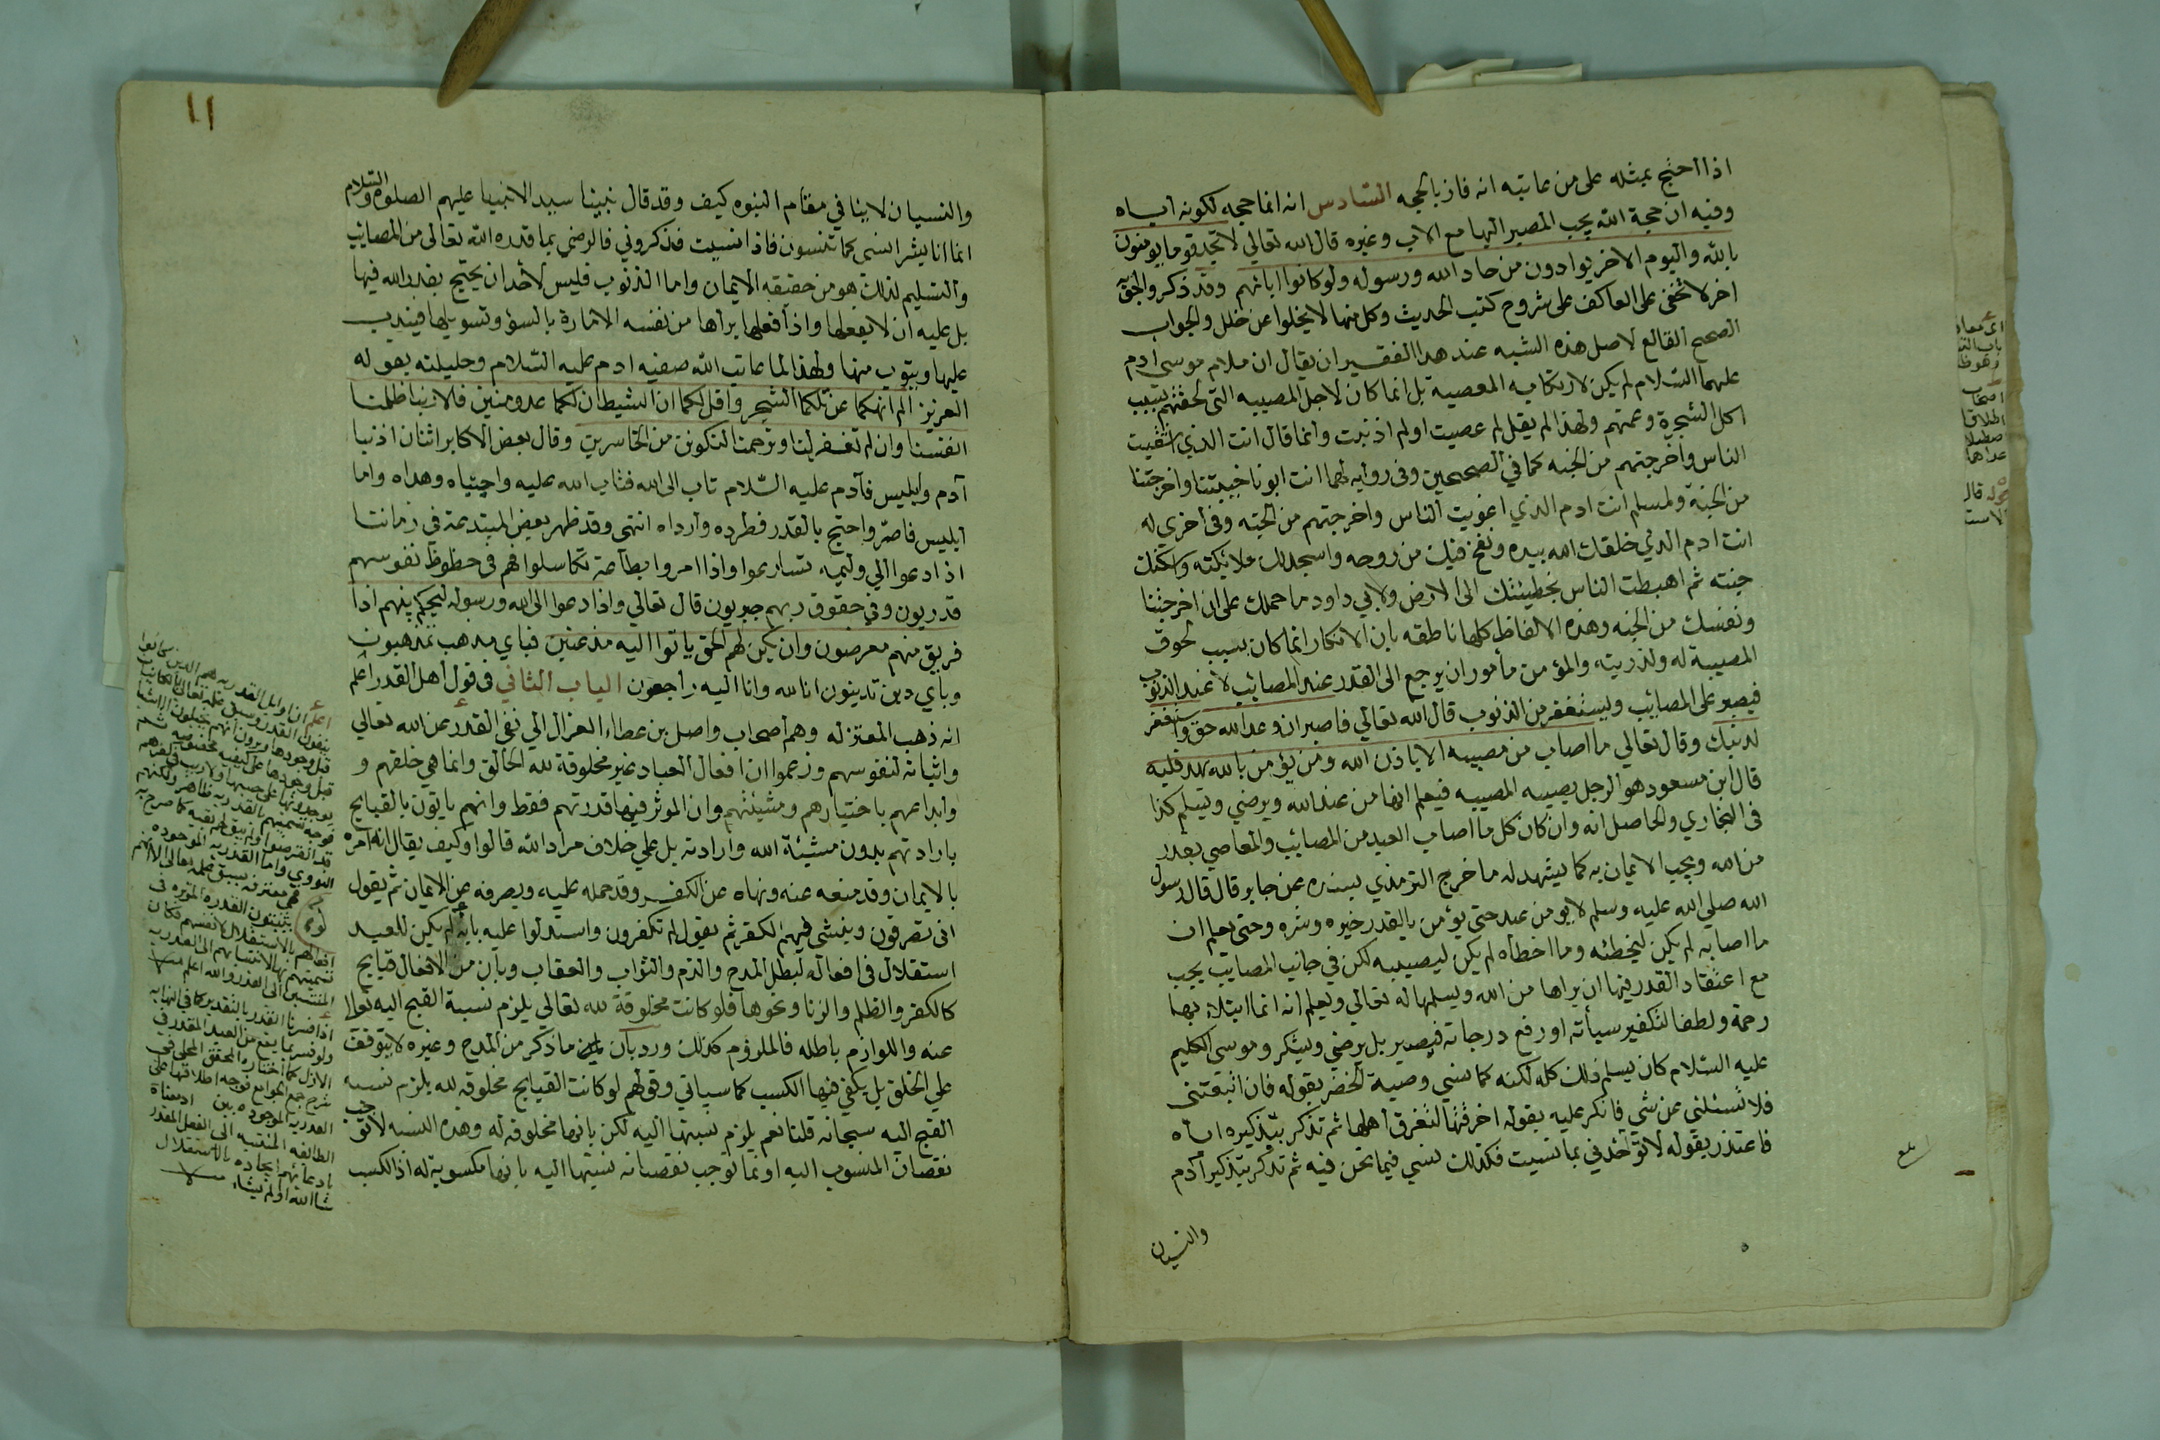 اذا احتج بمثله على من عاتبه انه فاز بالحجه السادس انه انما حجه لكونه اباه
وفيه ان حجة الله يجب المصير اليها مع الاب وغيره قال الله تعالي لا تجد قوما يومنون
بالله واليوم الاخر يوادون من حاد الله ورسوله ولو كانوا ابائهم وقد ذكر
اخر لا تخفى على العاكف على شروح كتب الحديث وكل منها لا يخلوا عن خلل والجواب
الصحيح القالع لاصل هذه الشبه عند هذا الفقير ان يقال ان ملام موسى ادم
عليهما السلام لم يكن لارتكابه المعصيه بل انما كان لاجل المصيبه التى لحقتهم بسبب
اكل الشجرة وعمتهم ولهذا لم يقل لم عصيت او لم اذنبت وانما قال انت الذي اشقيت
الناس واخرجتهم من الجنه كما في الصحيحين وفى روايه لهما انت ابونا خيبتنا واخرجتنا
من الجنة ولمسلم انت ادم الذي اغويت الناس واخرجتهم من الجنه وفى اخرى له
انت ادم الذي خلقك الله بيده ونفخ فيك من روحه واسجد لك ملائكته واسكنك
جنته ثم اهبطت الناس بخطيئتك الى الارض ولابي داود ما حملك على ان اخرجتنا
ونفسك من الجنه وهذه الالفاظ كلها ناطقه بان الانكار انما كان بسبب لحوق
المصيبة له ولذريته والمؤمن مأمور ان يرجع الى القدر عند المصائب لا عند الذنوب
فيصبر على المصائب ويستغفر من الذنوب قال الله تعالي فاصبر ان وعد الله حق واستغفر
لذنبك وقال تعالي ما اصاب من مصيبه الا باذن الله ومن يؤمن بالله يهد قلبه
قال ابن مسعود هو الرجل يصيبه المصيبه فيعلم انها من عند الله ويرضي ويسلم كذا
فى البخاري والحاصل انه وان كان كل ما اصاب العبد من المصائب والمعاصي بقدر
من الله ويجب الايمان به كما يشهد له ما خرج الترمذي بسنده عن جابر قال قال رسول
الله صلي الله عليه وسلم لا يومن عبد حتى يؤمن بالقدر خيره وشره وحتى يعلم ان
ما اصابه لم يكن ليخطئه وما اخطأه لم يكن ليصيبه لكن في جانب المصايب يجب
مع اعتقاد القدر فيها ان يراها من الله ويسلمها له تعالي ويعلم انه انما ابتلاه بها
رحمة ولطفا لتكفير سيأته او رفع درجاته فيصبر بل يرضي ويشكر وموسى الكليم
عليه السلام كان يسلم ذلك كله لكنه كما نسي وصية الخضر بقوله فان اتبعتنى
فلا تسئلني عن شي فانكر عليه بقوله اخرقتها لتغرق اهلها ثم تذكر بتذكيره اياه
فاعتذر بقوله لا تؤاخذني بما نسيت فكذلك نسي فيما نحن فيه ثم تذكر بتذكير آدم
والنسيان
١١
والنسيان لا ينافي مقام النبوه كيف وقد قال نبينا سيد الانبيا عليهم الصلوة والسلام
انما انا بشر انسى كما تنسون فاذا نسيت فذكروني فالرضي بما قدره الله تعالى من المصائب
والتسليم لذلك هو من حقيقه الايمان واما الذنوب فليس لاحد ان يحتج بقدر الله فيها
بل عليه ان لا يفعلها واذا فعلها يراها من نفسه الامارة بالسؤ وتسويلها فيندب
عليها ويتوب منها ولهذا لما عاتب الله صفيه ادم عليه السلام وحليلته بقوله
العزيز الم انهكما عن تلكما الشجر واقل لكما ان الشيطان لكما عدو مبين قالا ربنا ظلمنا
انفسنا وان لم تغفر لنا وترحمنا لنكونن من الخاسرين وقال بعض الاكابر اثنان اذنبا
آدم وابليس فآدم عليه السلام تاب الى الله فتاب الله عليه واجتباه وهداه واما
ابليس فاصر واحتج بالقدر فطرده وارداه انتهى وقد ظهر بعض المبتدعة في زماننا
اذا دعوا الي وليمه تسارعوا واذا امروا بطاعة تكاسلوا فهم فى حظوظ نفوسهم
قدريون وفي حقوق ربهم جبريون قال تعالي واذا دعوا الى الله ورسوله ليحكم بينهم اذا
فريق منهم معرضون وان يكن لهم الحق ياتوا اليه مذعنين فباي مذهب تمذهبون
وباي دين تدينون انا لله وانا اليه راجعون الباب الثاني فى قول اهل القدر اعلم
انه ذهب المعتزله وهم اصحاب واصل بن عطاء الغزال الي نفى القدر عن الله تعالي
واثباته لنفوسهم وزعموا ان افعال العباد غير مخلوقة لله الخالق وانما هي خلقهم و
وابداعهم باختيارهم ومشيئتهم وان الموثر فيها قدرتهم فقط وانهم ياتون بالقبايح
بارادتهم بدون مشيئة الله وارادته بل علي خلاف مراد الله قالوا وكيف يقال انه امره
بالايمان وقد منعه عنه ونهاه عن الكفر وقد حمله عليه ويصرفه عن الايمان ثم يقول
انى تصرفون وينشى فيهم الكفر ثم يقول لم تكفرون واستدلوا عليه بانه لو لم يكن للعبد
استقلال فى افعاله لبطل المدح والذم والثواب والعقاب وبان من الافعال قبايح
كالكفر والظلم والزنا ونحوها فلو كانت مخلوقة لله تعالي يلزم نسبة القبح اليه تعالى
عنه واللوازم باطله فالملزوم كذلك ورد بان ما ذكر من المدح وغيره لا يتوقف
علي الخلق بل يكفي فيها الكسب كما سياتي وقولهم لو كانت القبايح مخلوقه لله يلزم نسبه
القبح اليه سبحانه قلنا نعم يلزم نسبتها اليه لكن بانها مخلوقه له وهذه النسبه لا توجب
نقصان المنسوب اليه وانما توجب نقصانه نسبتها اليه بانها مكسوبة له اذ الكسب
اعلم ان اوايل القدريه هم الذين كانوا
النووي واما القدريه الموجوده
فهى معترفه بسبق علمه تعالى الا انهم
يثبتون القدرة الموثره فى
افعالهم بالاستقلال لانفسهم فكان
تسميتهم بها لانتسابهم الى القدريه
المنتسبين الى القدر والله اعلم
اذا فسرنا القدر بالتقدير كما فى النهايه
الطائفه المنتسبه الى الفعل المقدر
بادعائهم ايجاده بالاستقلال
شا الله او لم يشاء